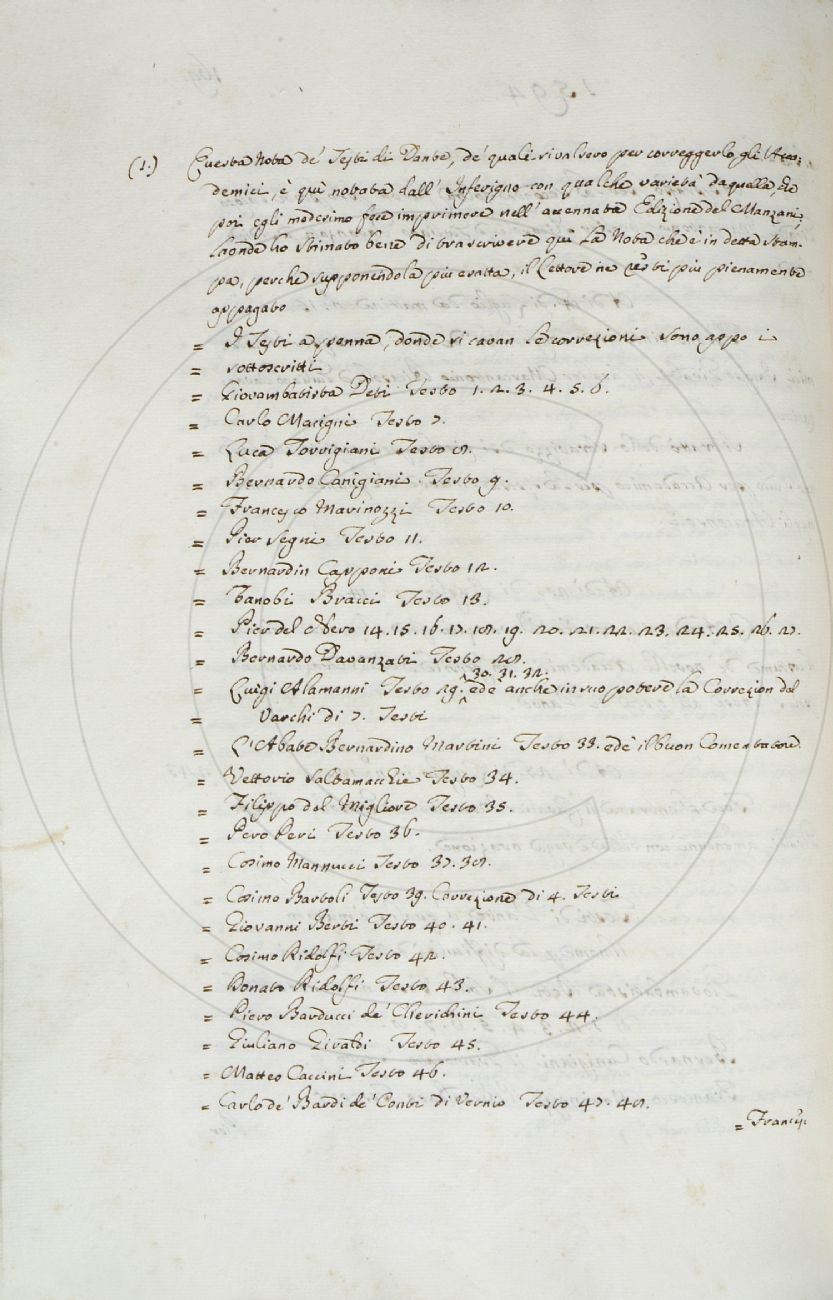 (1.) Questa Nota de' Testi di Dante, de' quali si valsero per correggerlo gli Acca=
demici, è quì notata dall' Inferigno con qualche varietà da quella, che
poi egli medesimo fece imprimere nell' accennata Edizione del Manzani;
laonde ho stimato bene di trascrivere quì la Nota che è in detta Stam=
pa, perche supponendola più esatta, il Lettore ne resti più pienamente
appagato.
= I Testi a penna, donde si cavan le correzioni sono appo i
= sottoscritti
= Giovambatista Deti Testo 1. 2. 3. 4. 5. 6.
= Carlo Macigni Testo 7.
= Luca Torrigiani Testo 8.
= Bernardo Canigiani Testo 9.
= Francesco Marinozzi Testo 10.
= Pier Segni Testo 11.
= Bernardin Capponi Testo 12.
= Zanobi Bracci Testo 13.
= Pier del Nero 14. 15. 16. 17. 18. 19. 20. 21. 22. 23. 24. 25. 26. 27.
= Bernardo Davanzati Testo 28.
= Luigi Alamanni Testo 29. 30. 31. 32. ed è anche in suo potere la Correzion del
= Varchi di 7. Testi
= L'Abate Bernardino Martini Testo 33. ed è il buon Comentatore.
= Vettorio Saltamacchie Testo 34.
= Filippo del Migliore Testo 35.
= Pero Peri Testo 36.
= Cosimo Mannucci Testo 37. 38.
= Cosimo Bartoli Testo 39. Correzione di 4. Testi
= Giovanni Berti Testo 40. 41.
= Cosimo Ridolfi Testo 42.
= Donato Ridolfi Testo 43.
= Piero Barducci de' Cherichini Testo 44.
= Giuliano Giraldi Testo 45.
= Matteo Caccini Testo 46.
= Carlo de' Bardi de' Conti di Vernio Testo 47. 48.
= Franc: